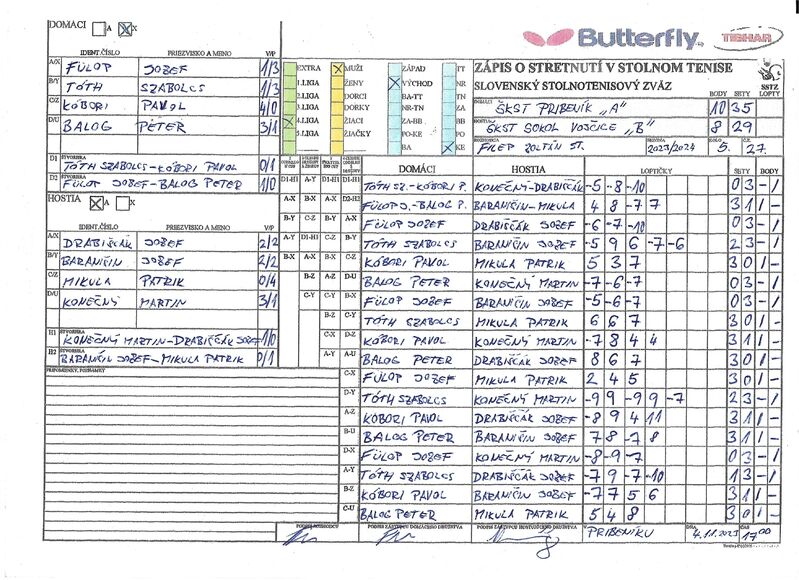 DOMÁCI A X
Butterfly
TIBHAR
IDENT.ČÍSLO PRIEZVISKO A MENO V/P
A/X FÜLOP JOZEF 1/3
B/Y TÓTH SZABOLCS 1/3
C/Z KÓBORI PAVOL 4/0
D/U BALOG PÉTER 3/1
EXTRA MUŽI ZÁPAD TT
1.LIGA ŽENY VÝCHOD NR
2.LIGA DORCI BA-TT TN
3.LIGA DORKY NR-TN ZA
4.LIGA ŽIACI ZA-BB BB
5.LIGA ŽIAČKY PO-KE PO
BA KE
ZÁPIS O STRETNUTÍ V STOLNOM TENISE
SLOVENSKÝ STOLNOTENISOVÝ ZVÄZ
SSTZ
BODY SETY LOPTY
DOMÁCI ŠKST PRIBENÍK „A" 10 35
HOSTIA ŠKST SOKOL VOJČICE „B" 8 29
FILEP ZOLTÁN ST. 2023/2024 5. 27.
D1 ŠTVORHRA TÓTH SZABOLCS-KÓBORI PAVOL 0/1
D2 FÜLOP JOZEF-BALOG PETER 1/0
HOSTIA A X
IDENT.ČÍSLO PRIEZVISKO A MENO V/P
A/X DRABIŠČÁK JOZEF 2/2
B/Y BARANIČIN JOZEF 2/2
C/Z MIKULA PATRIK 0/4
D/U KONEČNÝ MARTIN 3/1
H1 ŠTVORHRA KONEČNÝ MARTIN-DRABIŠČÁK JOZEF 1/0
H2 BARANIČIN JOZEF-MIKULA PATRIK 0/1
PRIPOMIENKY, POZNÁMKY
DOMÁCI HOSTIA LOPTIČKY SETY BODY
D1-H1 A-Y D1-H1 D1-H1 TÓTH SZ.-KÓBORI P. KONEČNÝ-DRABIŠČÁK -5 -8 -10 0 3 - 1
A-X B-X A-X D2-H2 FÜLOP J.-BALOG P. BARANIČIN-MIKULA 4 8 -7 7 3 1 1 -
B-Y C-Z B-Y A-X FÜLOP JOZEF DRABIŠČÁK JOZEF -6 -7 -10 0 3 - 1
A-Y D1-H1 C-Z B-Y TÓTH SZABOLCS BARANIČIN JOZEF -5 9 6 -7 -6 2 3 - 1
B-X A-X B-X C-Z KÓBORI PAVOL MIKULA PATRIK 5 3 7 3 0 1 -
B-Z A-Z D-U BALOG PETER KONEČNÝ MARTIN -7 -6 -7 0 3 - 1
C-Y C-Y B-X FÜLOP JOZEF BARANIČIN JOZEF -5 -6 -7 0 3 - 1
B-Z C-Y TÓTH SZABOLCS MIKULA PATRIK 6 6 7 3 0 1 -
C-X D-Z KÓBORI PAVOL KONEČNÝ MARTIN -7 8 4 4 3 1 1 -
A-Y A-U BALOG PETER DRABIŠČÁK JOZEF 8 6 7 3 0 1 -
C-X FÜLOP JOZEF MIKULA PATRIK 2 4 5 3 0 1 -
D-Y TÓTH SZABOLCS KONEČNÝ MARTIN -9 9 -9 9 -7 2 3 - 1
A-Z KÓBORI PAVOL DRABIŠČÁK JOZEF -8 9 4 11 3 1 1 -
B-U BALOG PETER BARANIČIN JOZEF 7 8 -7 8 3 1 1 -
D-X FÜLOP JOZEF KONEČNÝ MARTIN -8 -9 -7 0 3 - 1
A-Y TÓTH SZABOLCS DRABIŠČÁK JOZEF -7 9 -7 -10 1 3 - 1
B-Z KÓBORI PAVOL BARANIČIN JOZEF -7 7 5 6 3 1 1 -
C-U BALOG PETER MIKULA PATRIK 5 4 8 3 0 1 -
PODPIS ROZHODCU PODPIS ZÁSTUPCU DOMÁCEHO DRUŽSTVA PODPIS ZÁSTUPCU HOSŤUJÚCEHO DRUŽSTVA V PRIBENÍKU DŇA 4.11.2023 ČAS 17 00